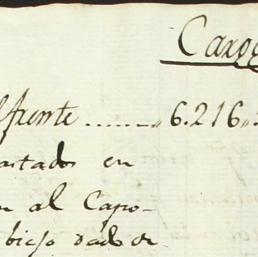 Cargo
lfrente ........ 6.216..
astados en
n al Capo-
bicso dado de